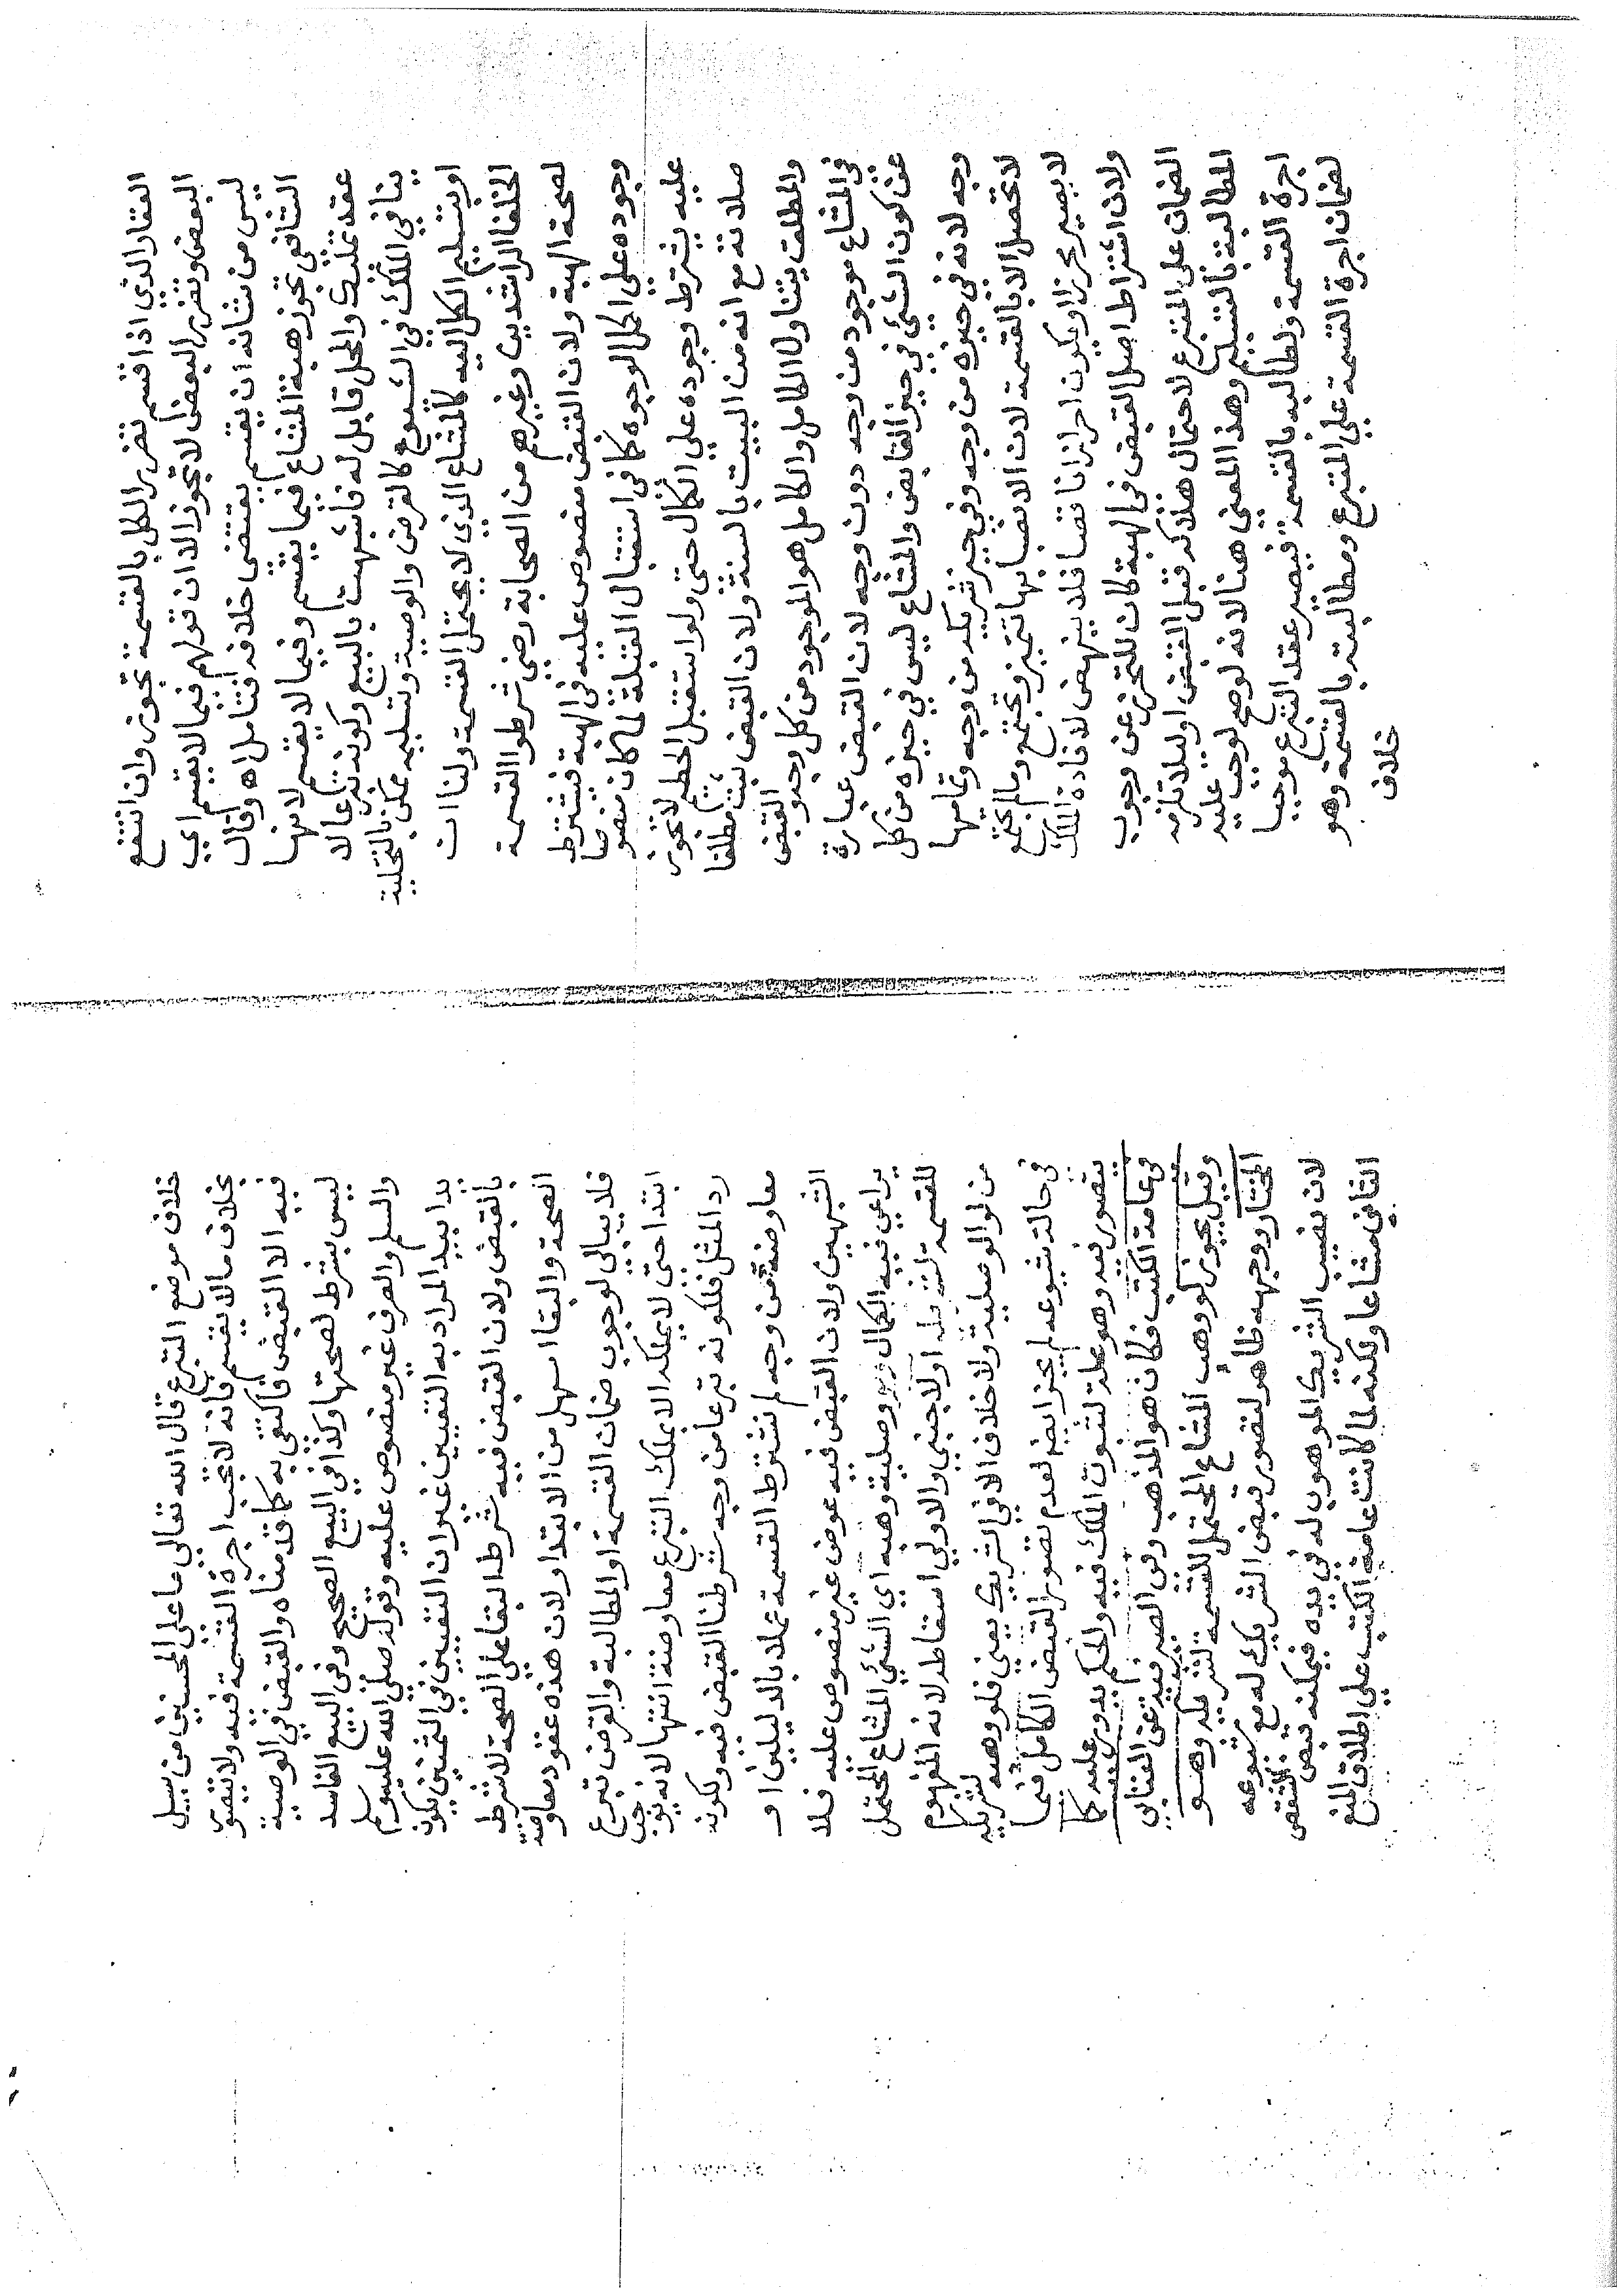 العقار الذي اذا قسم تضرر الكل بالقسمة تجوز وان انتفع
البعض وتضرر البعض لا تجوز الا ان قولهم فيما لا يقسم اي
ليس من شانه ان يقسم يقتضي خلافه فتامل اه وقال
الشافعي تجوز هبة المشاع فيما يقسم وفيما لا يقسم لانها
عقد تمليك والمحل قابل له فاشبهت بالبيع وكونه تبرعا لا
ينافي الملك في الشيوع كالقرض والوصية وتسليمه ممكن بالتخلية
او بتسليم الكل اليه كالمشاع الذي لا يحتمل القسمة ولنا ان
الخلفا الراشدين وغيرهم من الصحابة رضي شرطوا القسمة
لصحة الهبة ولان القبض منصوص عليه في الهبة فيشترط
وجوده علي اكمل الوجوه كما في استقبال القبلة لما كان منصوصا
عليه يشترط وجوده علي الكمال حتى ولو استقبل الحطيم لا تجوز
صلاته مع انه من البيت بالسنة ولان القبض ثبت مطلقا
والمطلق يتناول الكامل والكامل هو الموجود من كل وجه والقبض
في المشاع موجود من وجه دون وجه لان القبض عبارة
عن كون الشيئ في حيز القابض والمشاع ليس في حيزه من كل
وجه لانه في حيزه من وجه وفي حيز شريكه من وجه وتمامها
لا تحصل الا بالقسمة لان الانصبا بها تتميز وتجتمع ومالم يجتمع
لا يصير محرزا ويكون احرازا ناقصا فلا ينهض لافادة الملك
ولان اشتراط اصل القبض في الهبة كان للتحرز عن وجوب
الضمان على المتبرع لاحتمال هلاكه قبل القبض او ليلا تلزمه
المطالبة بالتسليم وهذا المعني هنا لانه لو صح لوجب عليه
اجرة القسمة ولطالبه بالقسمة فيصير عقد التبرع موجبا
لضمان اجرة القسمة علي المتبرع ومطالبته بالقسمة وهو
خلاف
خلاف موضع التبرع قال الله تعالي ما على المحسنين من سبيل
بخلاف مالا يقسم فانه لا تجب اجرة القسمة فيه ولا يتصور
فيه الا القبض فاكتفي به كما قدمناه والقبض في الوصية
ليس بشرط لصحتها وكذا في البيع الصحيح وفي البيع الفاسد
والسلم والصرف غير منصوص عليه وقوله صلي الله عليه وسلم
يدا بيد المراد به التعيين غير ان التعيين في الثمنين يكون
بالقبض ولان القبض فيه شرط البقا علي الصحة لا شرط
الصحة والبقا اسهل من الابتدا ولان هذه عقود معاوضة
فلا يبالى لوجوب ضمان القسمة او المطالبة والقرض تبرع
ابتدا حتى لا يملكه الا بملك التبرع معاوضة انتها لانه يوجب
رد المثل فلكونه تبرعا من وجه شرطنا القبض فيه ولكونه
معاوضة من وجه لم نشترط القسمة عملا بالدليلين او
الشبهين ولان القبض فيه عوض غير منصوص عليه فلا
يراعي فيه الكمال وهبة اي الشئي المشاع المحتمل
للقسمة اولا جنبي والاولي اسقاطه لانه المفهوم
من لو الوصلية ولا خلاف الا في الشريك يعني فلو وهبه لشريكه
في حالة شيوعه لم يجز ايضا لعدم تصور القبض الكامل فيما
يتصور فيه وهو علة لثبوت الملك فيه والحكم يدور عليه كما
في عامة الكتب فكان هو المذهب وفي الصيرفية عن العتابي
وقيل يجوز لو وهب المشاع المحتمل للقسمة لشريكه وهو
المختار ووجهه ظاهر لتصور قبض الشريك له مع شيوعه
لان نصيب الشريك الموهوب له في يده فيمكنه قبض النقص
الثاني مشاعا ولكنه لما كانت عامة الكتب علي اطلاق المنع